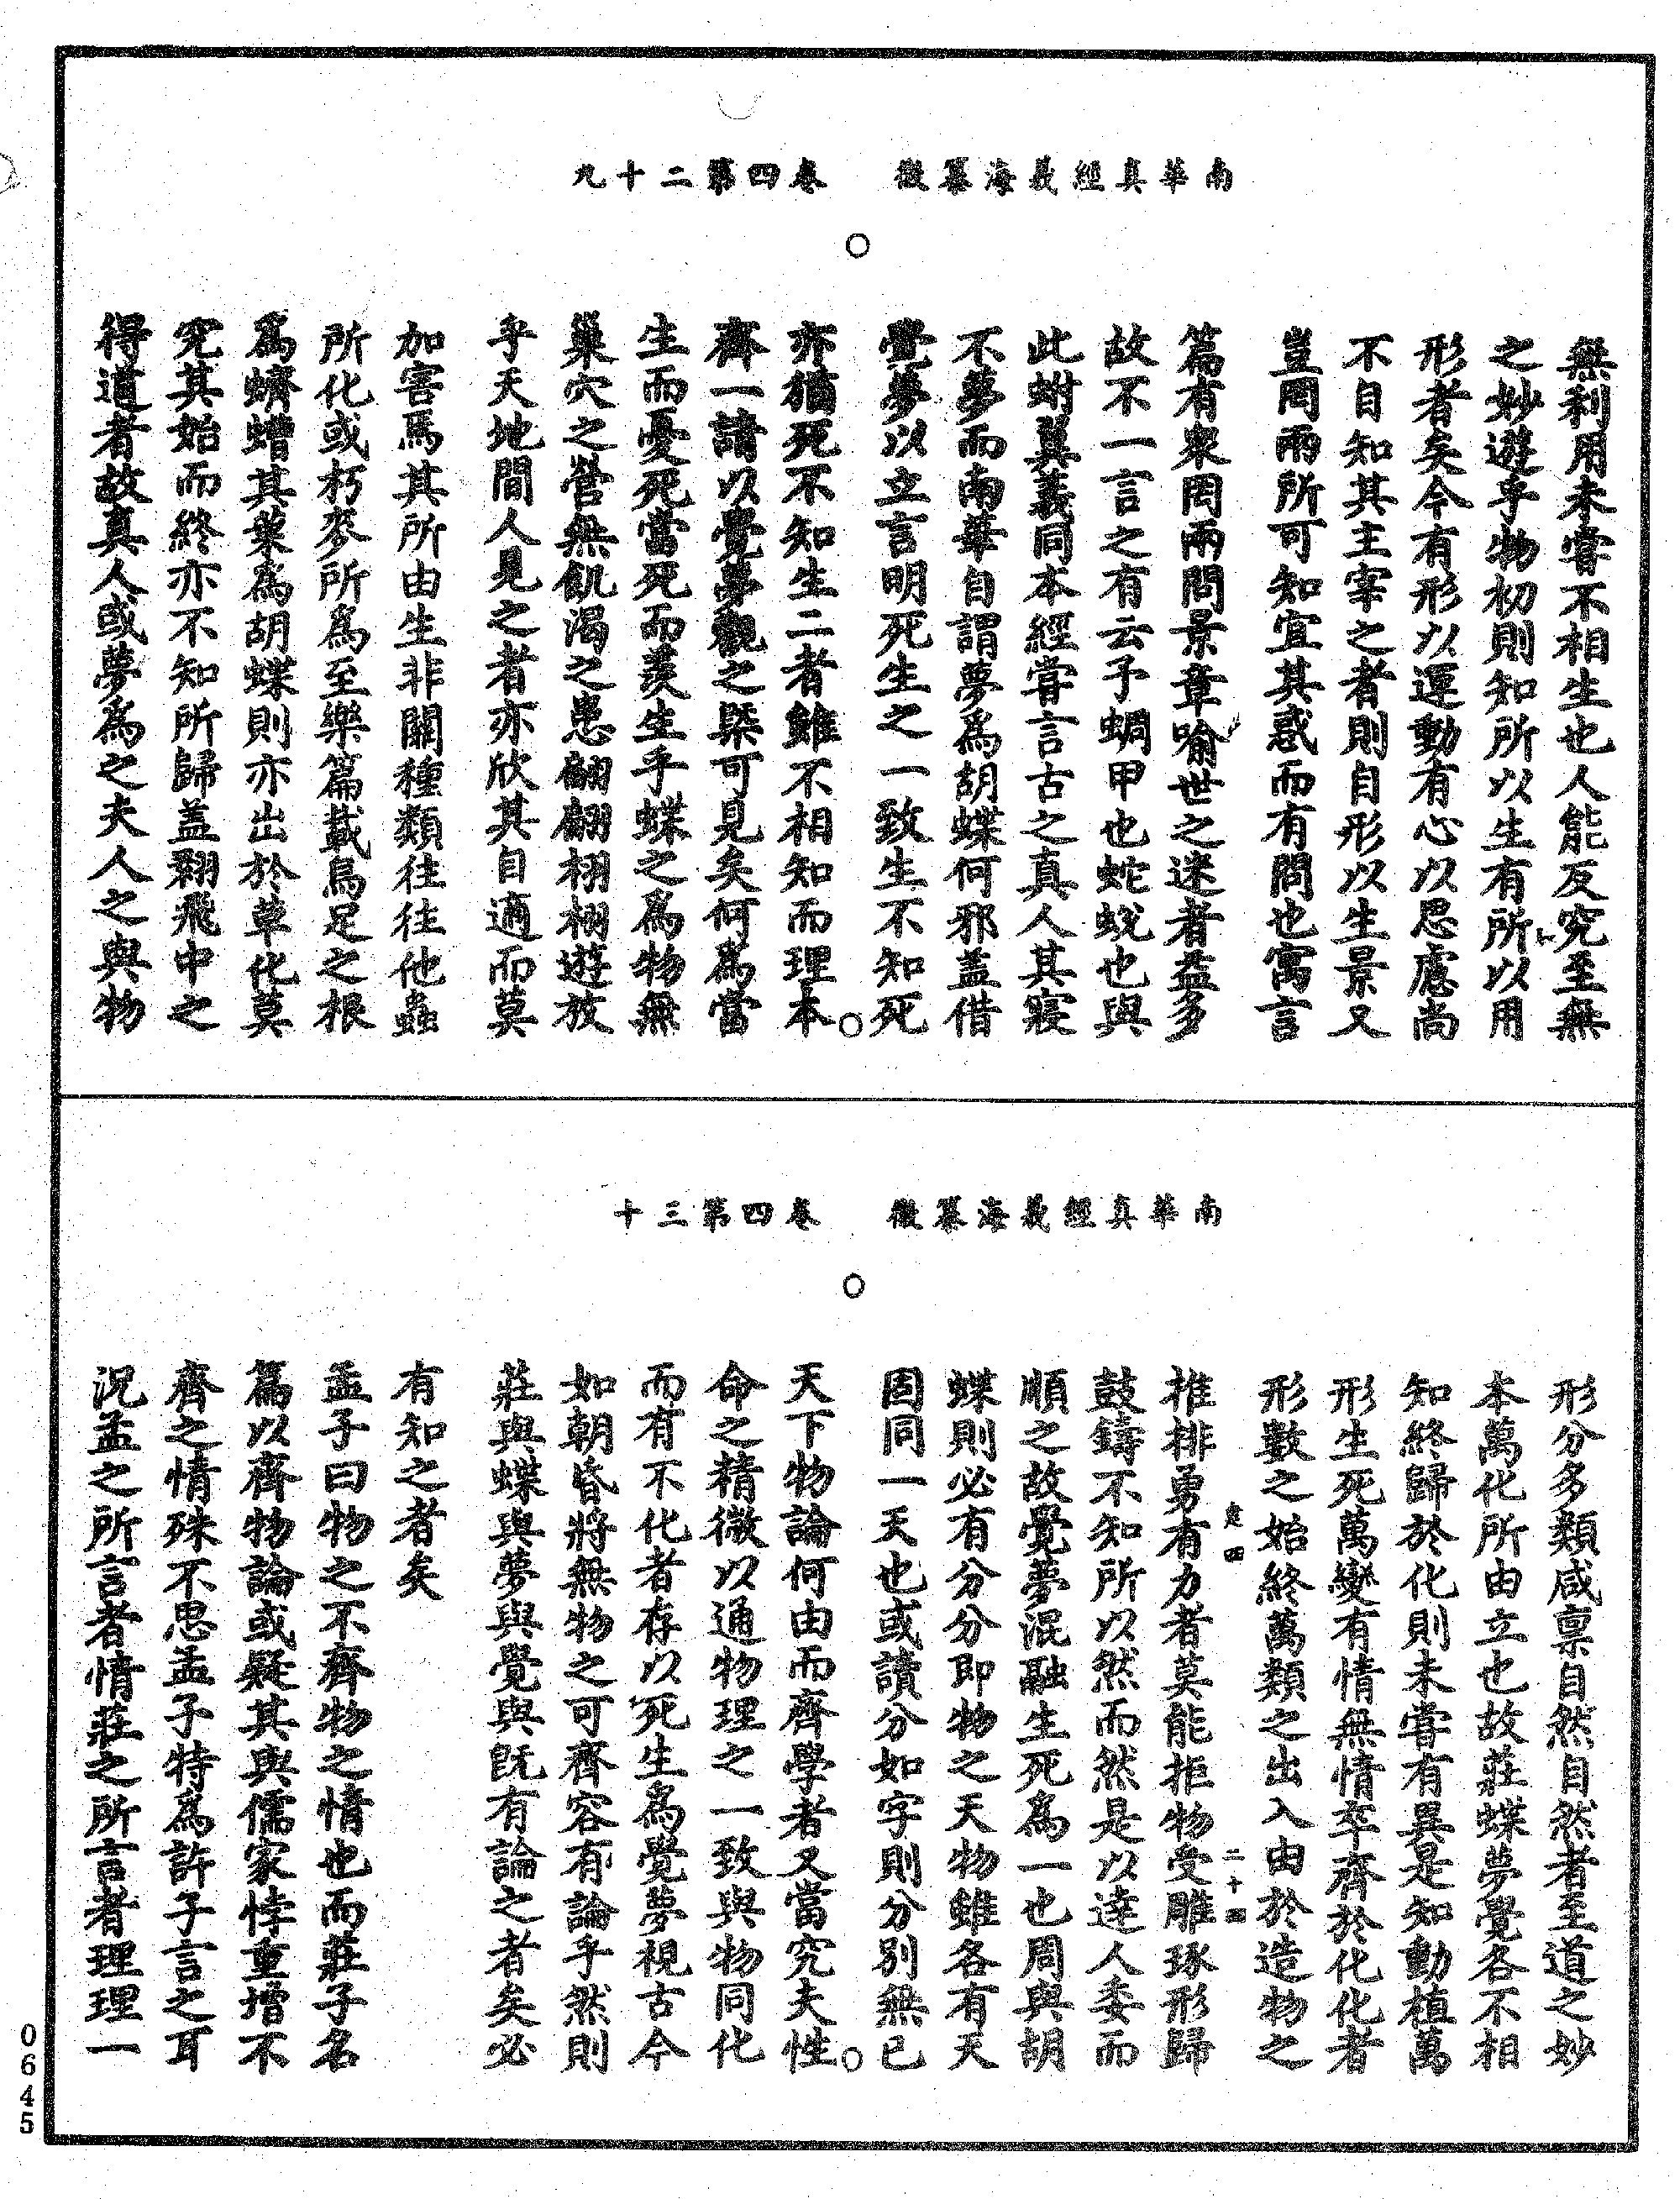 南華真經義海纂微　卷四第二十九
無利用未嘗不相生也人能反究至無
之妙遊乎物初則知所以生有所以用
形者矣今有形以運動有心以思慮尚
不自知其主宰之者則自形以生景又
豈罔兩所可知宜其惑而有問也寓言
篇有衆罔兩問景章喻世之迷者益多
故不一言之有云予蜩甲也蛇蛻也與
此蚹翼義同本經嘗言古之真人其寢
不夢而南華自謂夢爲胡蝶何邪盖借
覺夢以立言明死生之一致生不知死
亦猶死不知生二者雖不相知而理本
齊一請以覺夢觀之槩可見矣何爲當
生而憂死當死而羨生乎蝶之爲物無
巢穴之營無飢渴之患翩翩栩栩遊放
乎天地間人見之者亦欣其自適而莫
加害焉其所由生非關種類往往他蟲
所化或朽麥所爲至樂篇載烏足之根
爲蠐螬其葉爲胡蝶則亦出於草化莫
究其始而終亦不知所歸盖翾飛中之
得道者故真人或夢爲之夫人之與物
南華真經義海纂微　卷四第三十
形分多類咸禀自然自然者至道之妙
本萬化所由立也故莊蝶夢覺各不相
知終歸於化則未嘗有異是知動植萬
形生死萬變有情無情卒齊於化化者
形數之始終萬類之出入由於造物之
推排勇有力者莫能拒物受雕琢形歸
鼓鑄不知所以然而然是以達人委而
順之故覺夢混融生死爲一也周與胡
蝶則必有分分即物之天物雖各有天
固同一天也或讀分如字則分別無已
天下物論何由而齊學者又當究夫性
命之精微以通物理之一致與物同化
而有不化者存以死生爲覺夢視古今
如朝昏將無物之可齊容有論乎然則
莊與蝶與夢與覺與既有論之者矣必
有知之者矣
孟子曰物之不齊物之情也而莊子名
篇以齊物論或疑其與儒家悖重增不
齊之情殊不思孟子特爲許子言之耳
況孟之所言者情莊之所言者理理一
二十四
0645